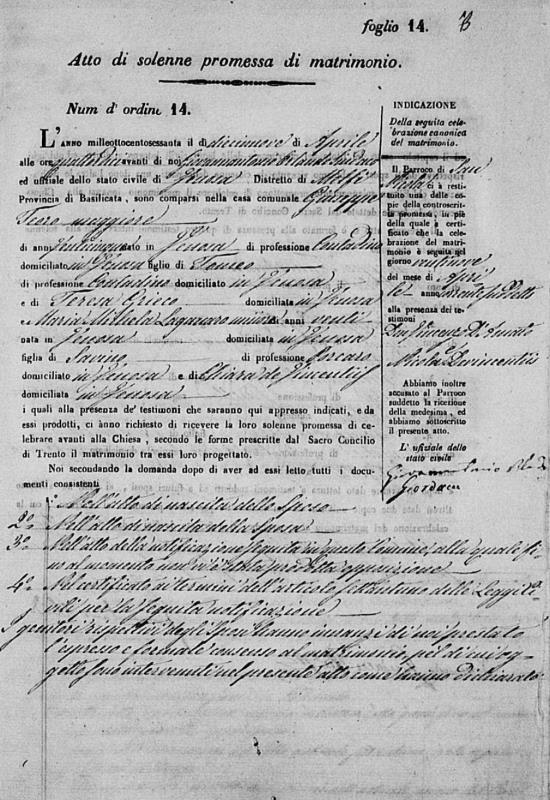 foglio 14.
Atto di solenne promessa di matrimonio.
Num d' ordine 14.
L'ANNO milleottocentosessanta il dì diecinove di Aprile
alle ore quattordici avanti di noi Sindaco
ed uffiziale dello stato civile di Venosa Distretto di Melfi
Provincia di Basilicata, sono comparsi nella casa comunale Giuseppe
maggiore
di anni ventcinque nato in Venosa di professione Contadino
domiciliato in Venosa figlio di
di professione Contadino domiciliato in Venosa
e di Teresa Grieco domiciliata in Venosa
e Maria Michela Lagazaro di anni venti
nata in Venosa domiciliata in Venosa
figlia di Savino di professione
domiciliato in Venosa e di Chiara de Vincentiis
domiciliata in Venosa
i quali alla presenza de' testimoni che saranno qui appresso indicati, e da
essi prodotti, ci anno richiesto di ricevere la loro solenne promessa di ce-
lebrare avanti alla Chiesa, secondo le forme prescritte dal Sacro Concilio
di Trento il matrimonio tra essi loro progettato.
Noi secondando la domanda dopo di aver ad essi letto tutti i docu-
menti consistenti
Nell'atto di nascita dello Sposo
2º Nell'atto di nascita della Sposa
3º Nell'atto della notificazione seguita in questo Comune, alla quale fi-
no al momento non vi è stata prodotta opposizione
4º Nel certificato a' termini dell'articolo settantuno delle Leggi Ci-
vili per la seguita notificazione
I genitori rispettivi degli Sposi hanno innanzi di noi prestato
l'espresso e formale consenso al matrimonio pel di cui og-
getto sono intervenuti nel presente atto come hanno dichiarato
INDICAZIONE
Della seguita cele-
brazione canonica
del matrimonio.
Il Parroco di San
Nicola ci à resti-
tuito una delle co-
pie della controscrit-
ta promessa, in piè
della quale à certi-
ficato che la cele-
brazione del matri-
monio è seguita nel
giorno ventinove
del mese di Apri-
le anno
alla presenza dei te-
stimoni
Don Vincenzo D'Amato
Nicola Devincentiis
Abbiamo inoltre
accusato al Parroco
suddetto la ricezione
della medesima, ed
abbiamo sottoscritto
il presente atto.
L' ufiziale dello
stato civile